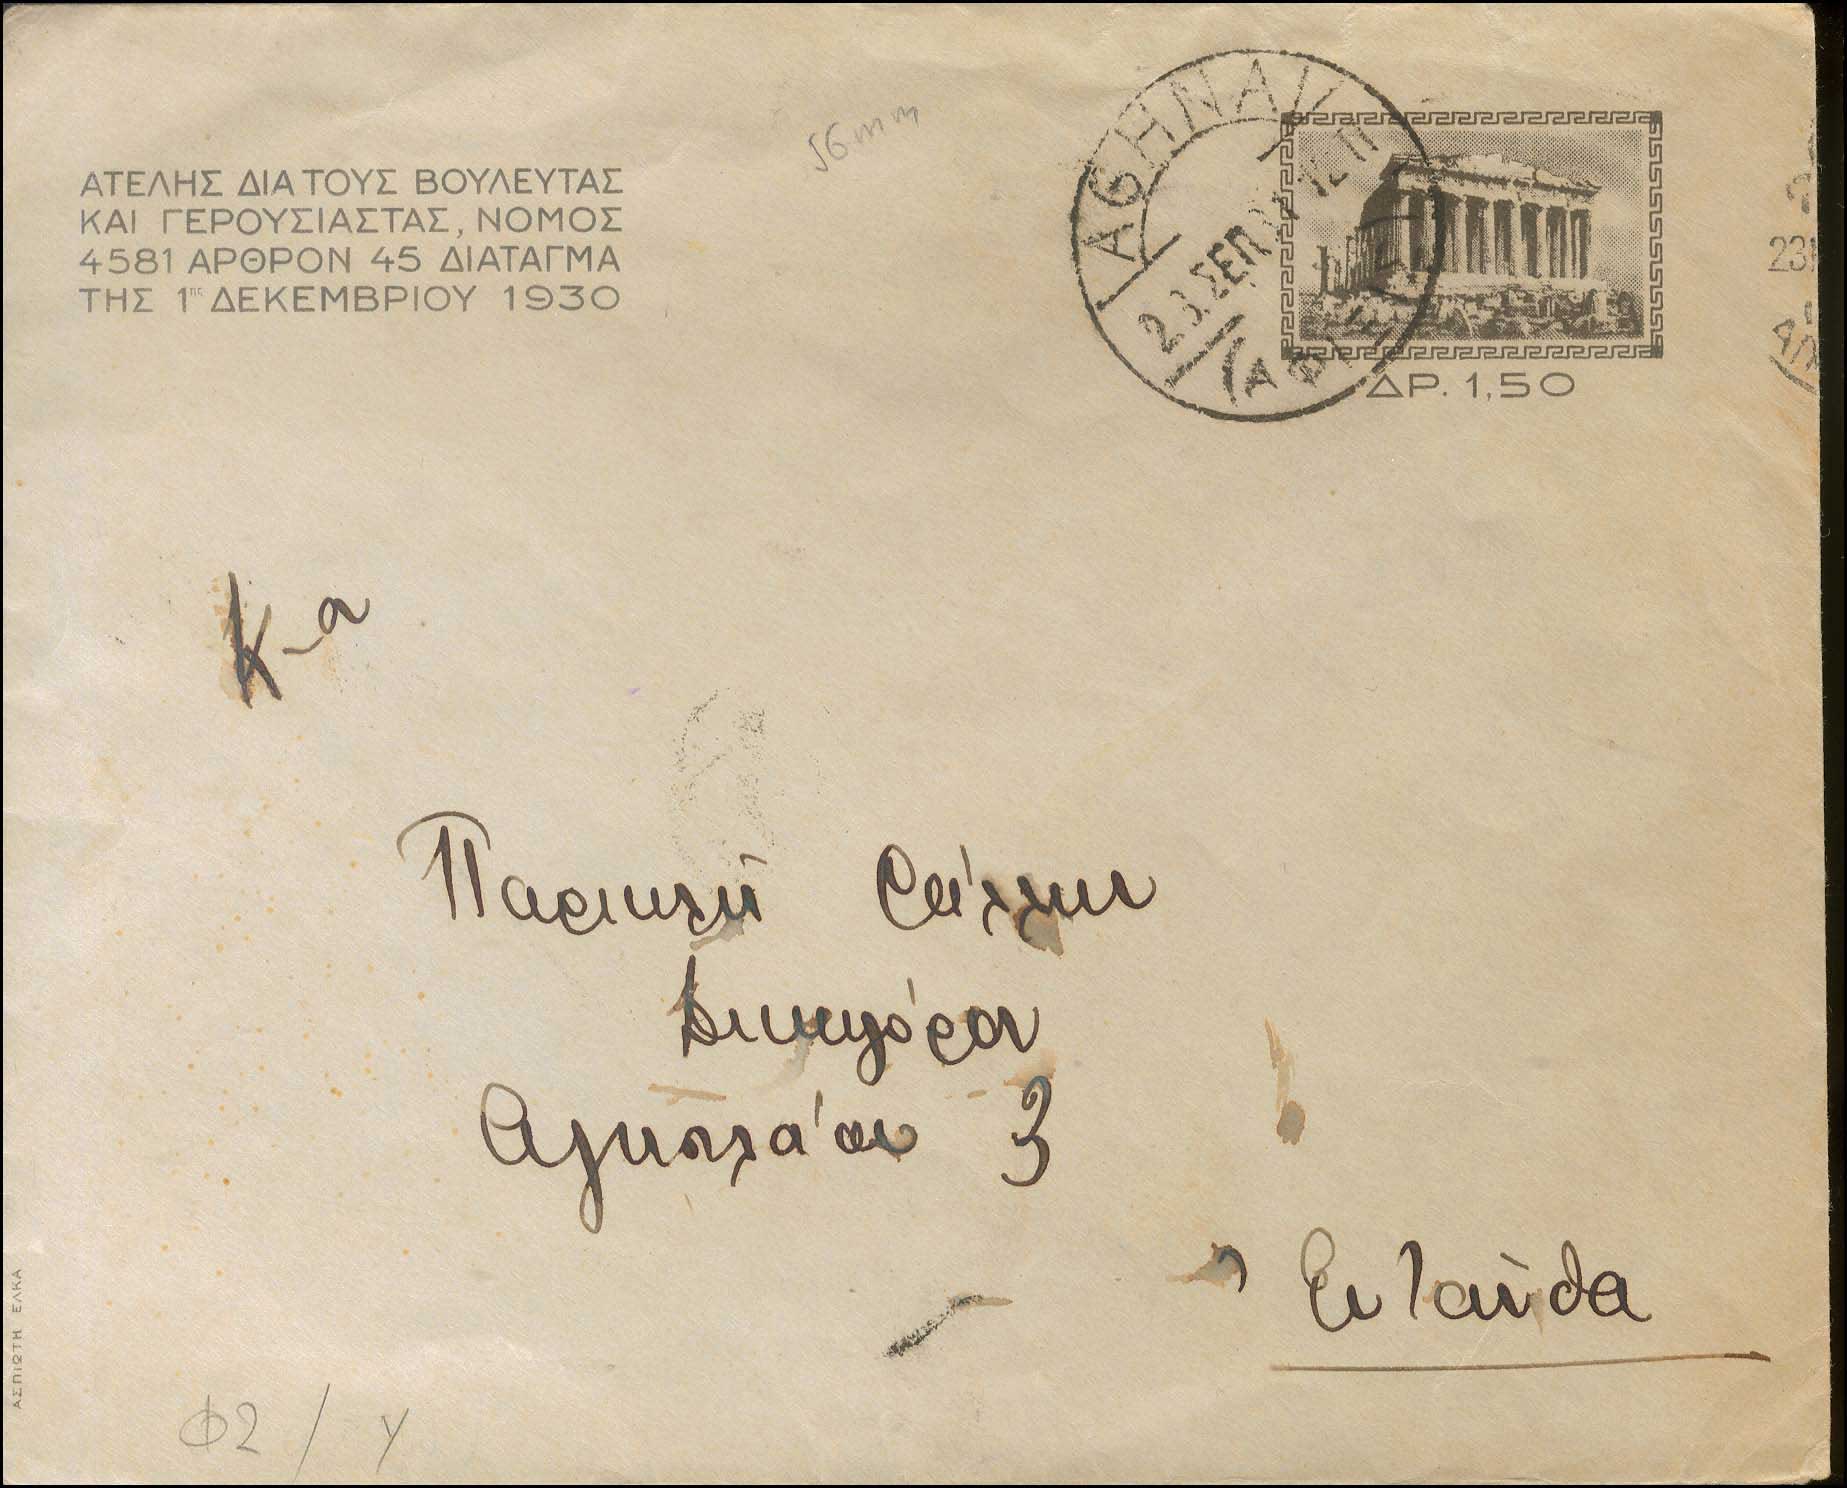 ΑΤΕΛΗΣ ΔΙΑ ΤΟΥΣ ΒΟΥΛΕΥΤΑΣ
ΚΑΙ ΓΕΡΟΥΣΙΑΣΤΑΣ, ΝΟΜΟΣ
4581 ΑΡΘΡΟΝ 45 ΔΙΑΤΑΓΜΑ
ΤΗΣ 1ης ΔΕΚΕΜΒΡΙΟΥ 1930
56mm
ΑΘΗΝΑΙ
23 ΣΕΠ
ΔΡ. 1,50
23
Κ-ον
Περικλή Ράλλην
Δικηγόρον
Αγησιλάου 3
Ενταύθα
ΑΣΠΙΩΤΗ ΕΛΚΑ
Φ2 / γ